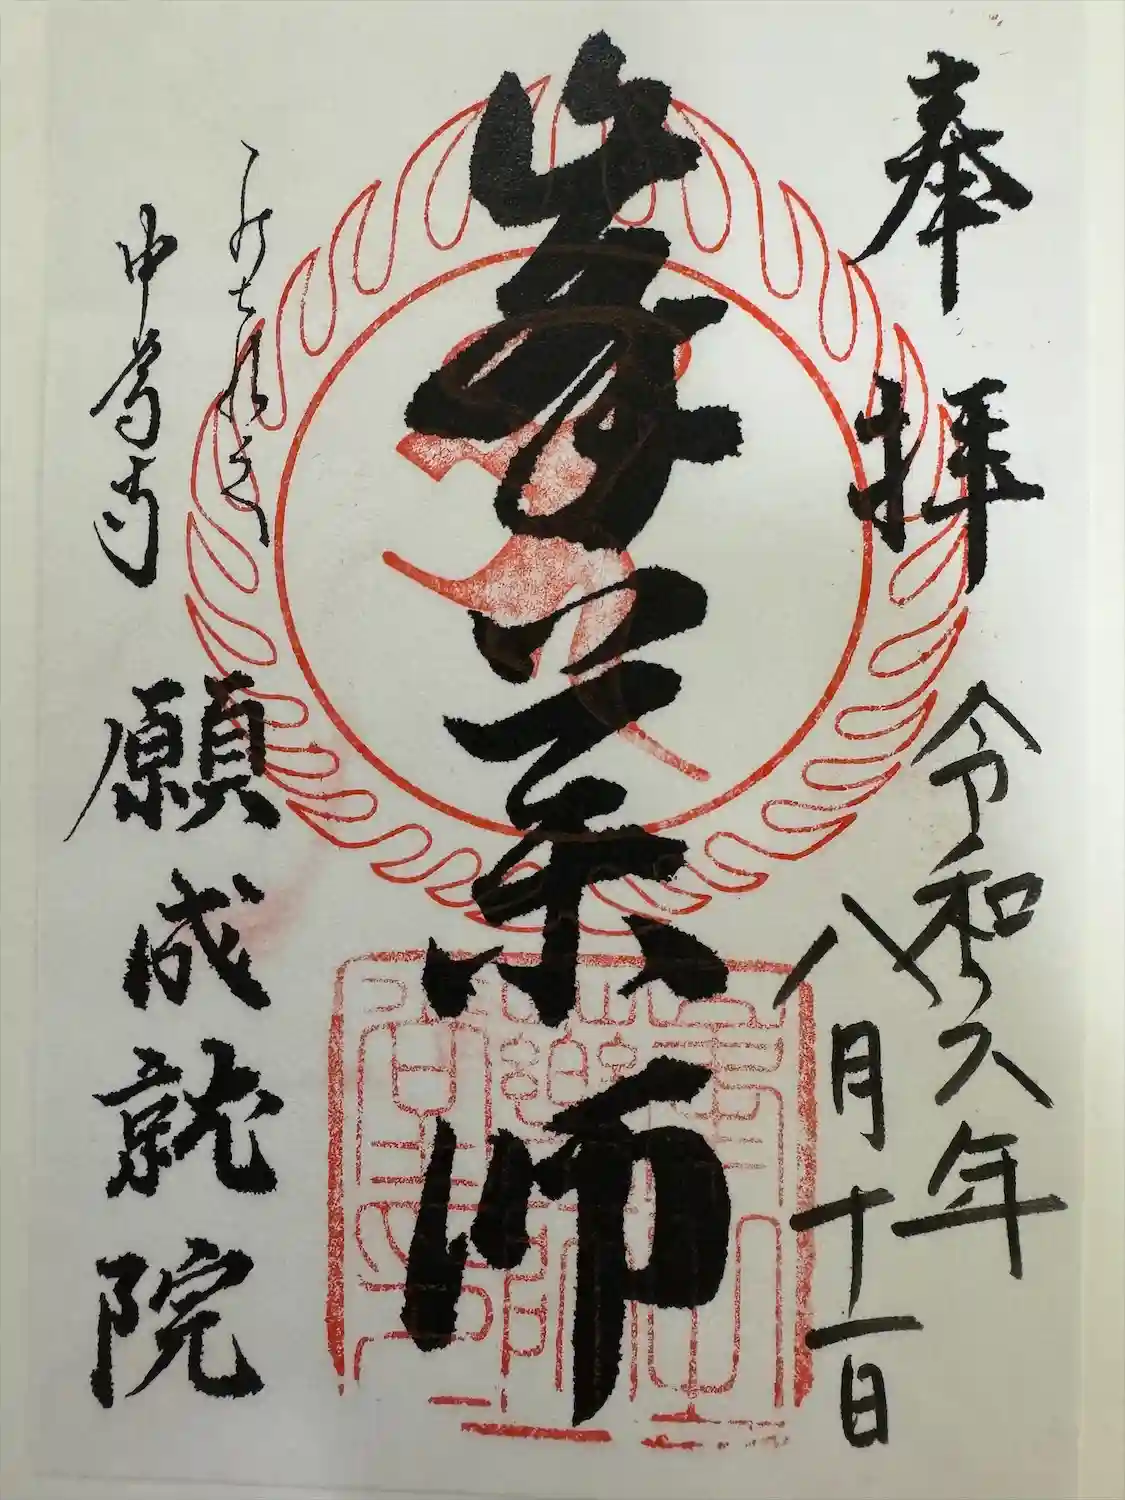 奉拝
令和六年
八月十一日
峯薬師
願成就院
中尊寺